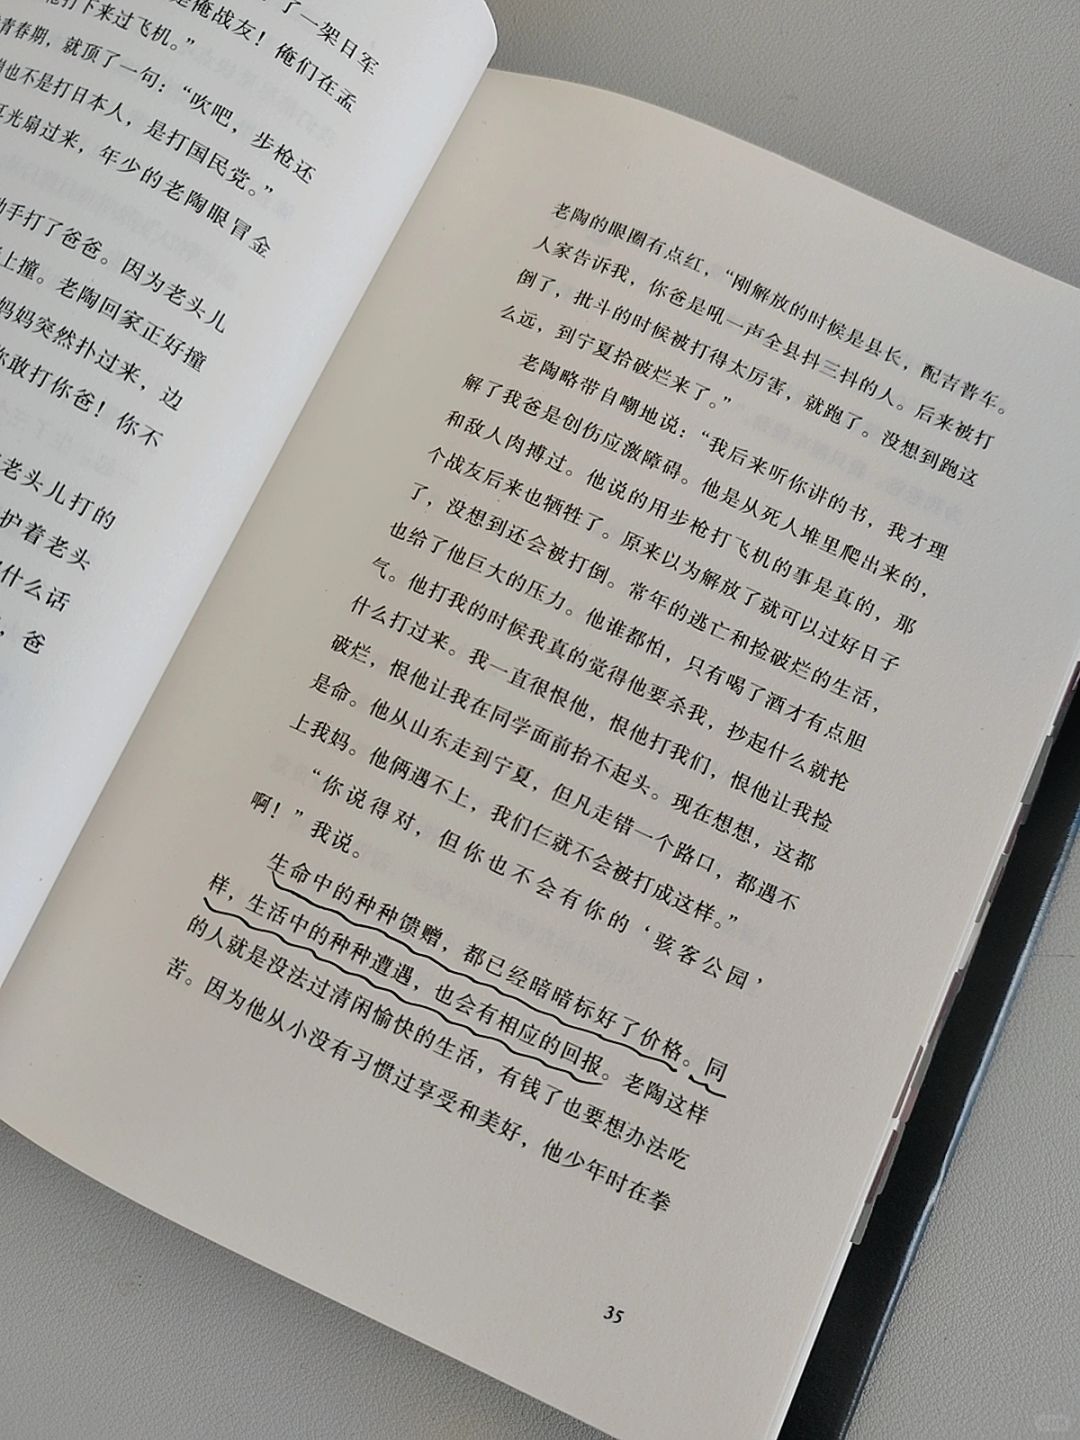 了一架日军
是俺战友！俺们在孟
打下来过飞机。”
青春期，就顶了一句：“吹吧，步枪还
也不是打日本人，是打国民党。”
耳光扇过来，年少的老陶眼冒金
动手打了爸爸。因为老头儿
上撞。老陶回家正好撞
妈妈突然扑过来，边
你敢打你爸！你不
老头儿打的
护着老头
什么话
，爸
老陶的眼圈有点红，“刚解放的时候是县长，配吉普车。
人家告诉我，你爸是吼一声全县抖三抖的人。后来被打
倒了，批斗的时候被打得太厉害，就跑了。没想到跑这
么远，到宁夏拾破烂来了。”
老陶略带自嘲地说：“我后来听你讲的书，我才理
解了我爸是创伤应激障碍。他是从死人堆里爬出来的，
和敌人肉搏过。他说的用步枪打飞机的事是真的，那
个战友后来也牺牲了。原来以为解放了就可以过好日子
了，没想到还会被打倒。常年的逃亡和捡破烂的生活，
也给了他巨大的压力。他谁都怕，只有喝了酒才有点胆
气。他打我的时候我真的觉得他要杀我，抄起什么就抡
什么打过来。我一直很恨他，恨他打我们，恨他让我捡
破烂，恨他让我在同学面前抬不起头。现在想想，这都
是命。他从山东走到宁夏，但凡走错一个路口，都遇不
上我妈。他俩遇不上，我们仨就不会被打成这样。”
“你说得对，但你也不会有你的‘骇客公园’
啊！”我说。
生命中的种种馈赠，都已经暗暗标好了价格。同
样，生活中的种种遭遇，也会有相应的回报。老陶这样
的人就是没法过清闲愉快的生活，有钱了也要想办法吃
苦。因为他从小没有习惯过享受和美好，他少年时在拳
35